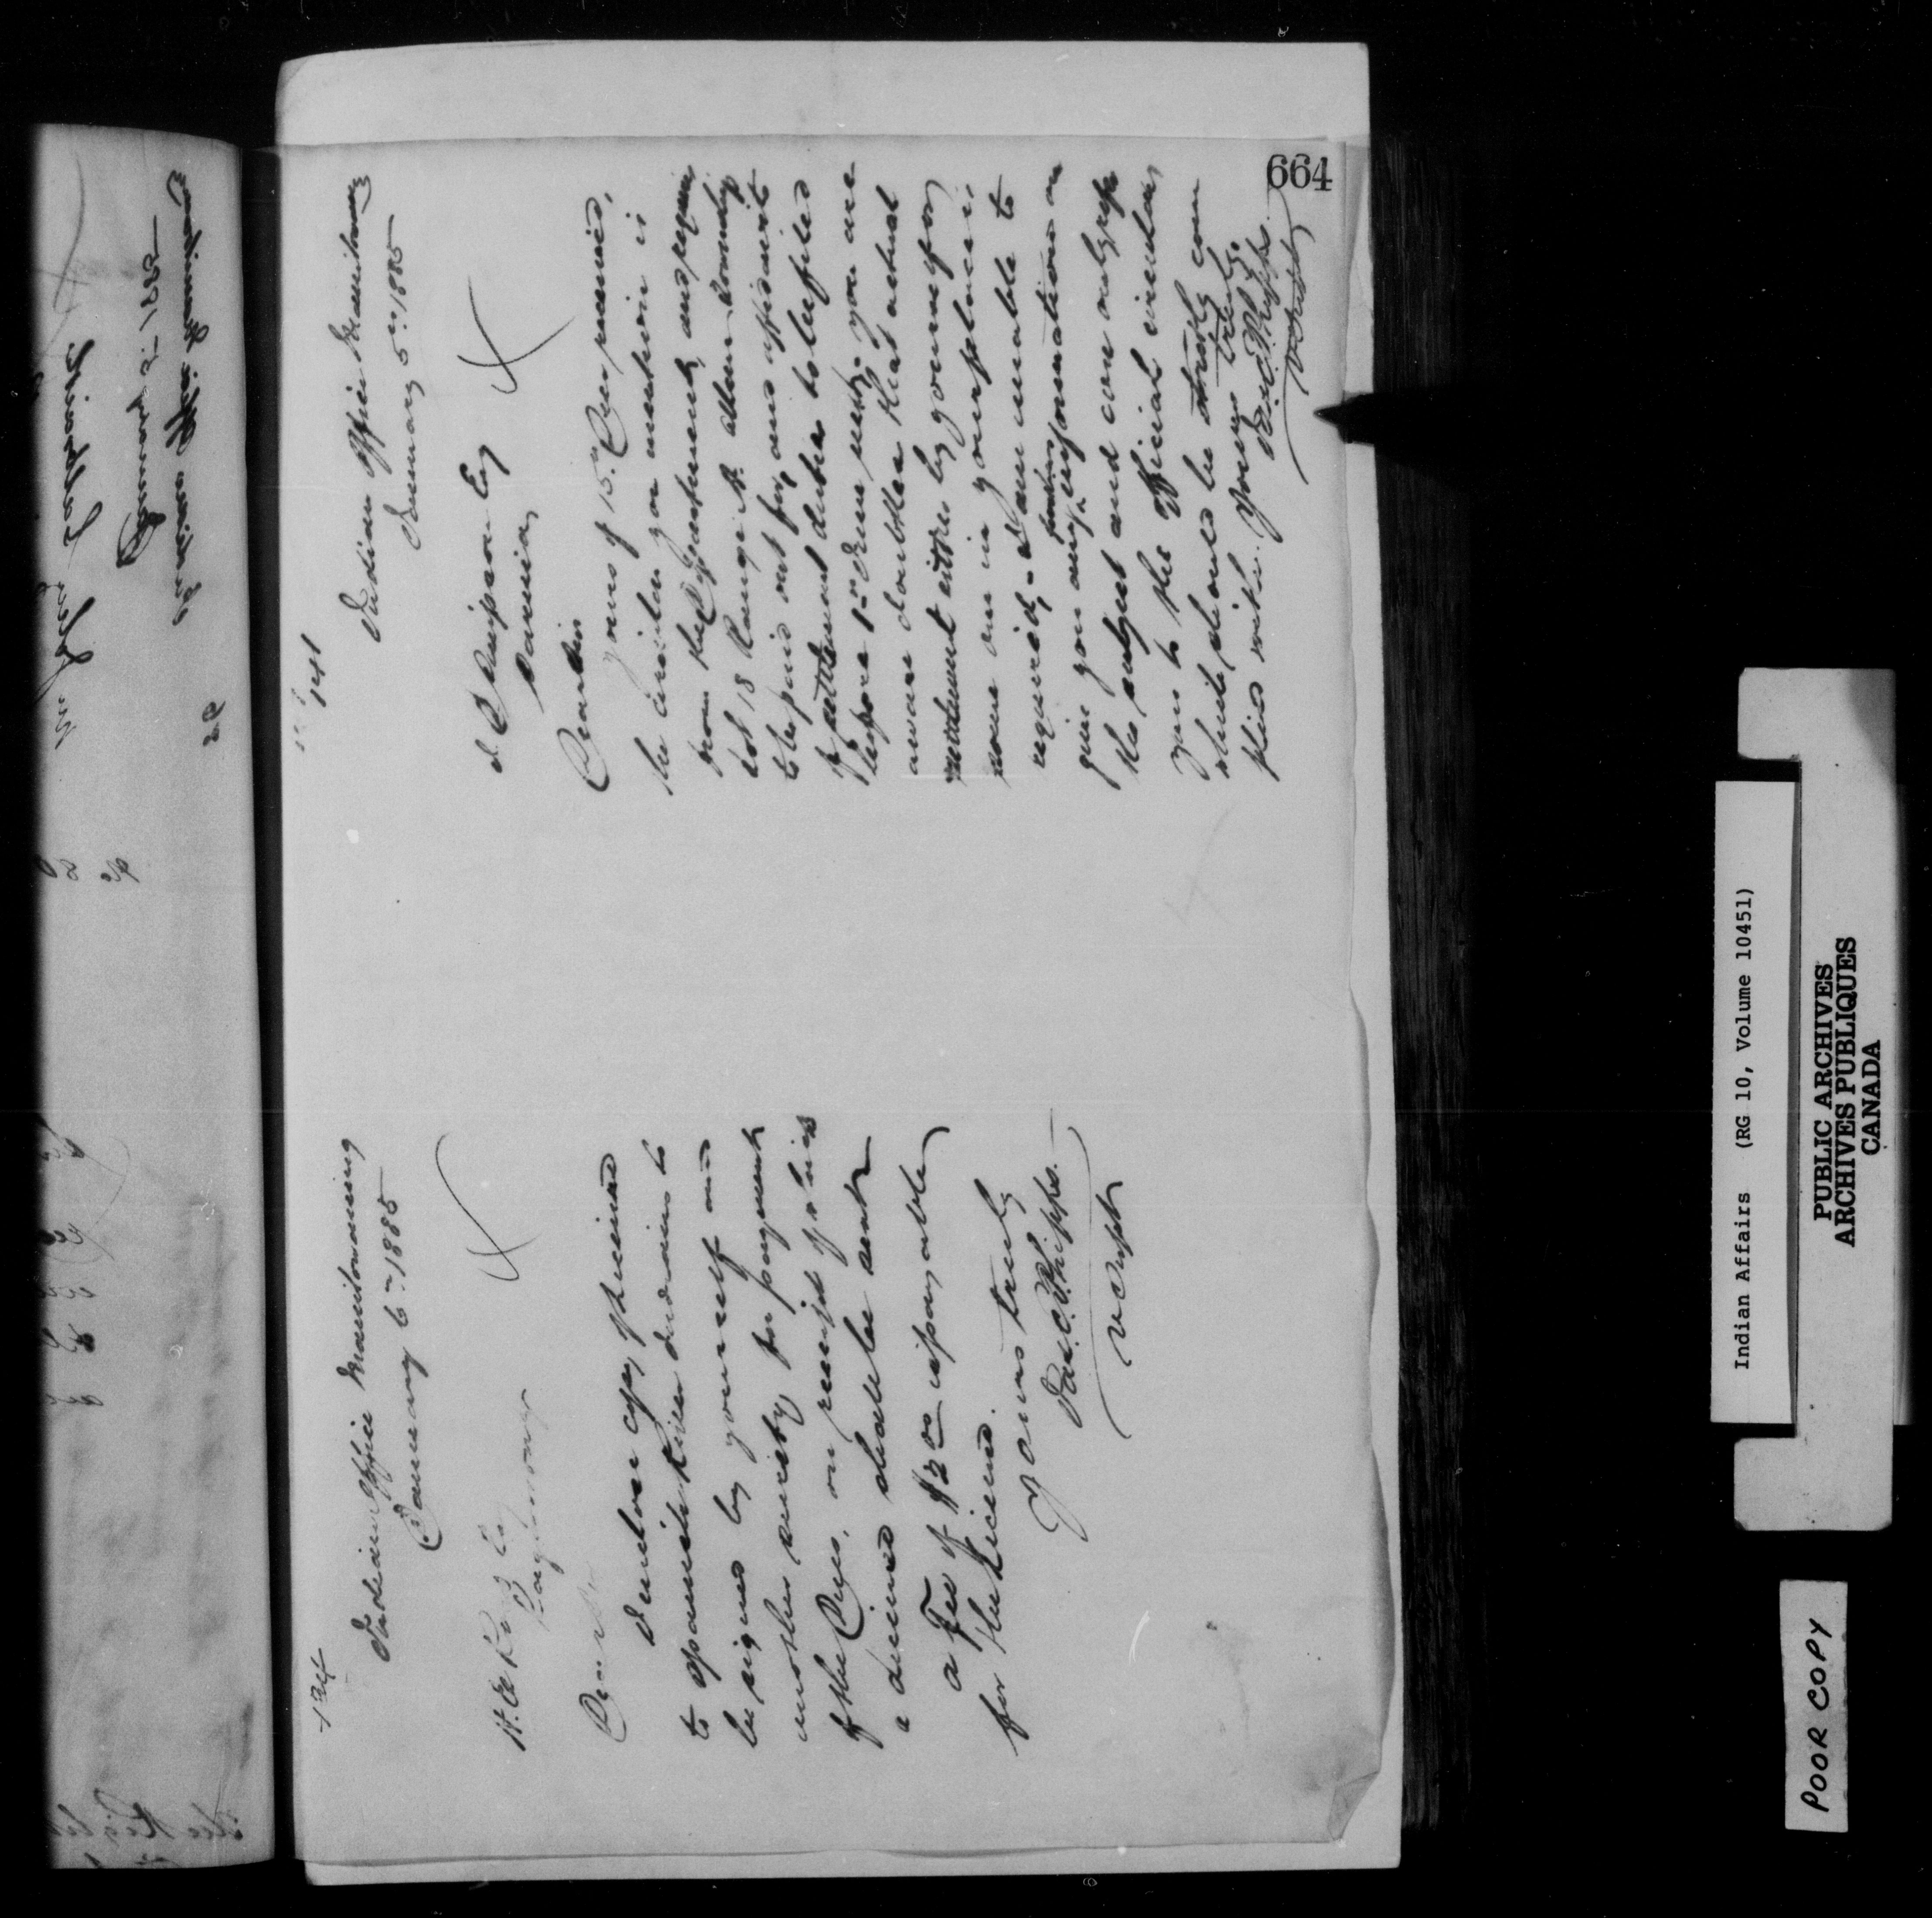 664
134
Indian Office Manitowaning
January 6th 1885
Dear Sir
I enclose copy of License
to Spanish River Indians to
be signed by yourself and
another surety for payment
of the Dues, on receipt of which
a License shall be sent
a Fee of $2.00 is payable
for the License.
Yours truly
Jas. C. Phipps.
V Supt
141
Indian Office Manitowaning
January 5th 1885
Esq
Sarnia
Dear Sir
Yours of 15th Decr received,
the circular you mention is
from the Department, and requires
Lot 18 Range A. Township
to be paid out for, and affidavit
of settlement duties to be filed
before 1st June next. you are
aware doubtless that actual
settlement either by yourself or
some one in your place is
required, I am unable to
give you any further information on
the subject and can only refer
you to the official circular,
which should be strictly com
plied with. Yours truly
Jas. C. Phipps.
V Supt
January 5 1885
Indian Office Manitowaning
Indian Affairs (RG 10, Volume 10451)
PUBLIC ARCHIVES
ARCHIVES PUBLIQUES
CANADA
POOR COPY